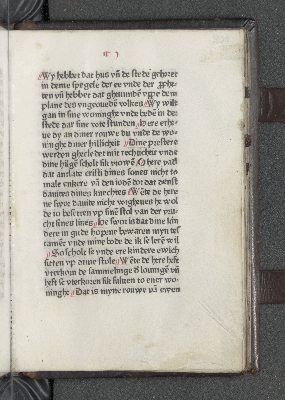 Wy hebbet dat hus vñ de stede gehoret
in deme spegele der ere vnde der
vñ hebbet dat ghevunden vppe dem
plane des vngeouede volkes Wy wilt
gan in sine woninghe vnde bede in der
stede dar sine vote stunden Here erhe
ue dy an diner rouwe du vnde de wo
ninghe diner hillicheit Dine prestere
werden ghecledet mit rechticheit vnde
dine hilge scholt sik vrowen Here vad
dat antlate cristi dines sones nicht to
male enkere van den ioden dor dat denst
dauites dines knechtes
ne swor dauite nicht
de io besetten vp sinen stol van der vru
cht sines lines He swor is dat dine kin
dere in gude hopene bewaren myn tes
tament vnde mine bode de ik se leren wil
So scholt se vnde ere kindere ewich
sitten vp dine stole Wente de here heft
vterkorn de sammelinge
heft se vterkoren sik suluen to ener wo
ninghe Dat is myne rouwe